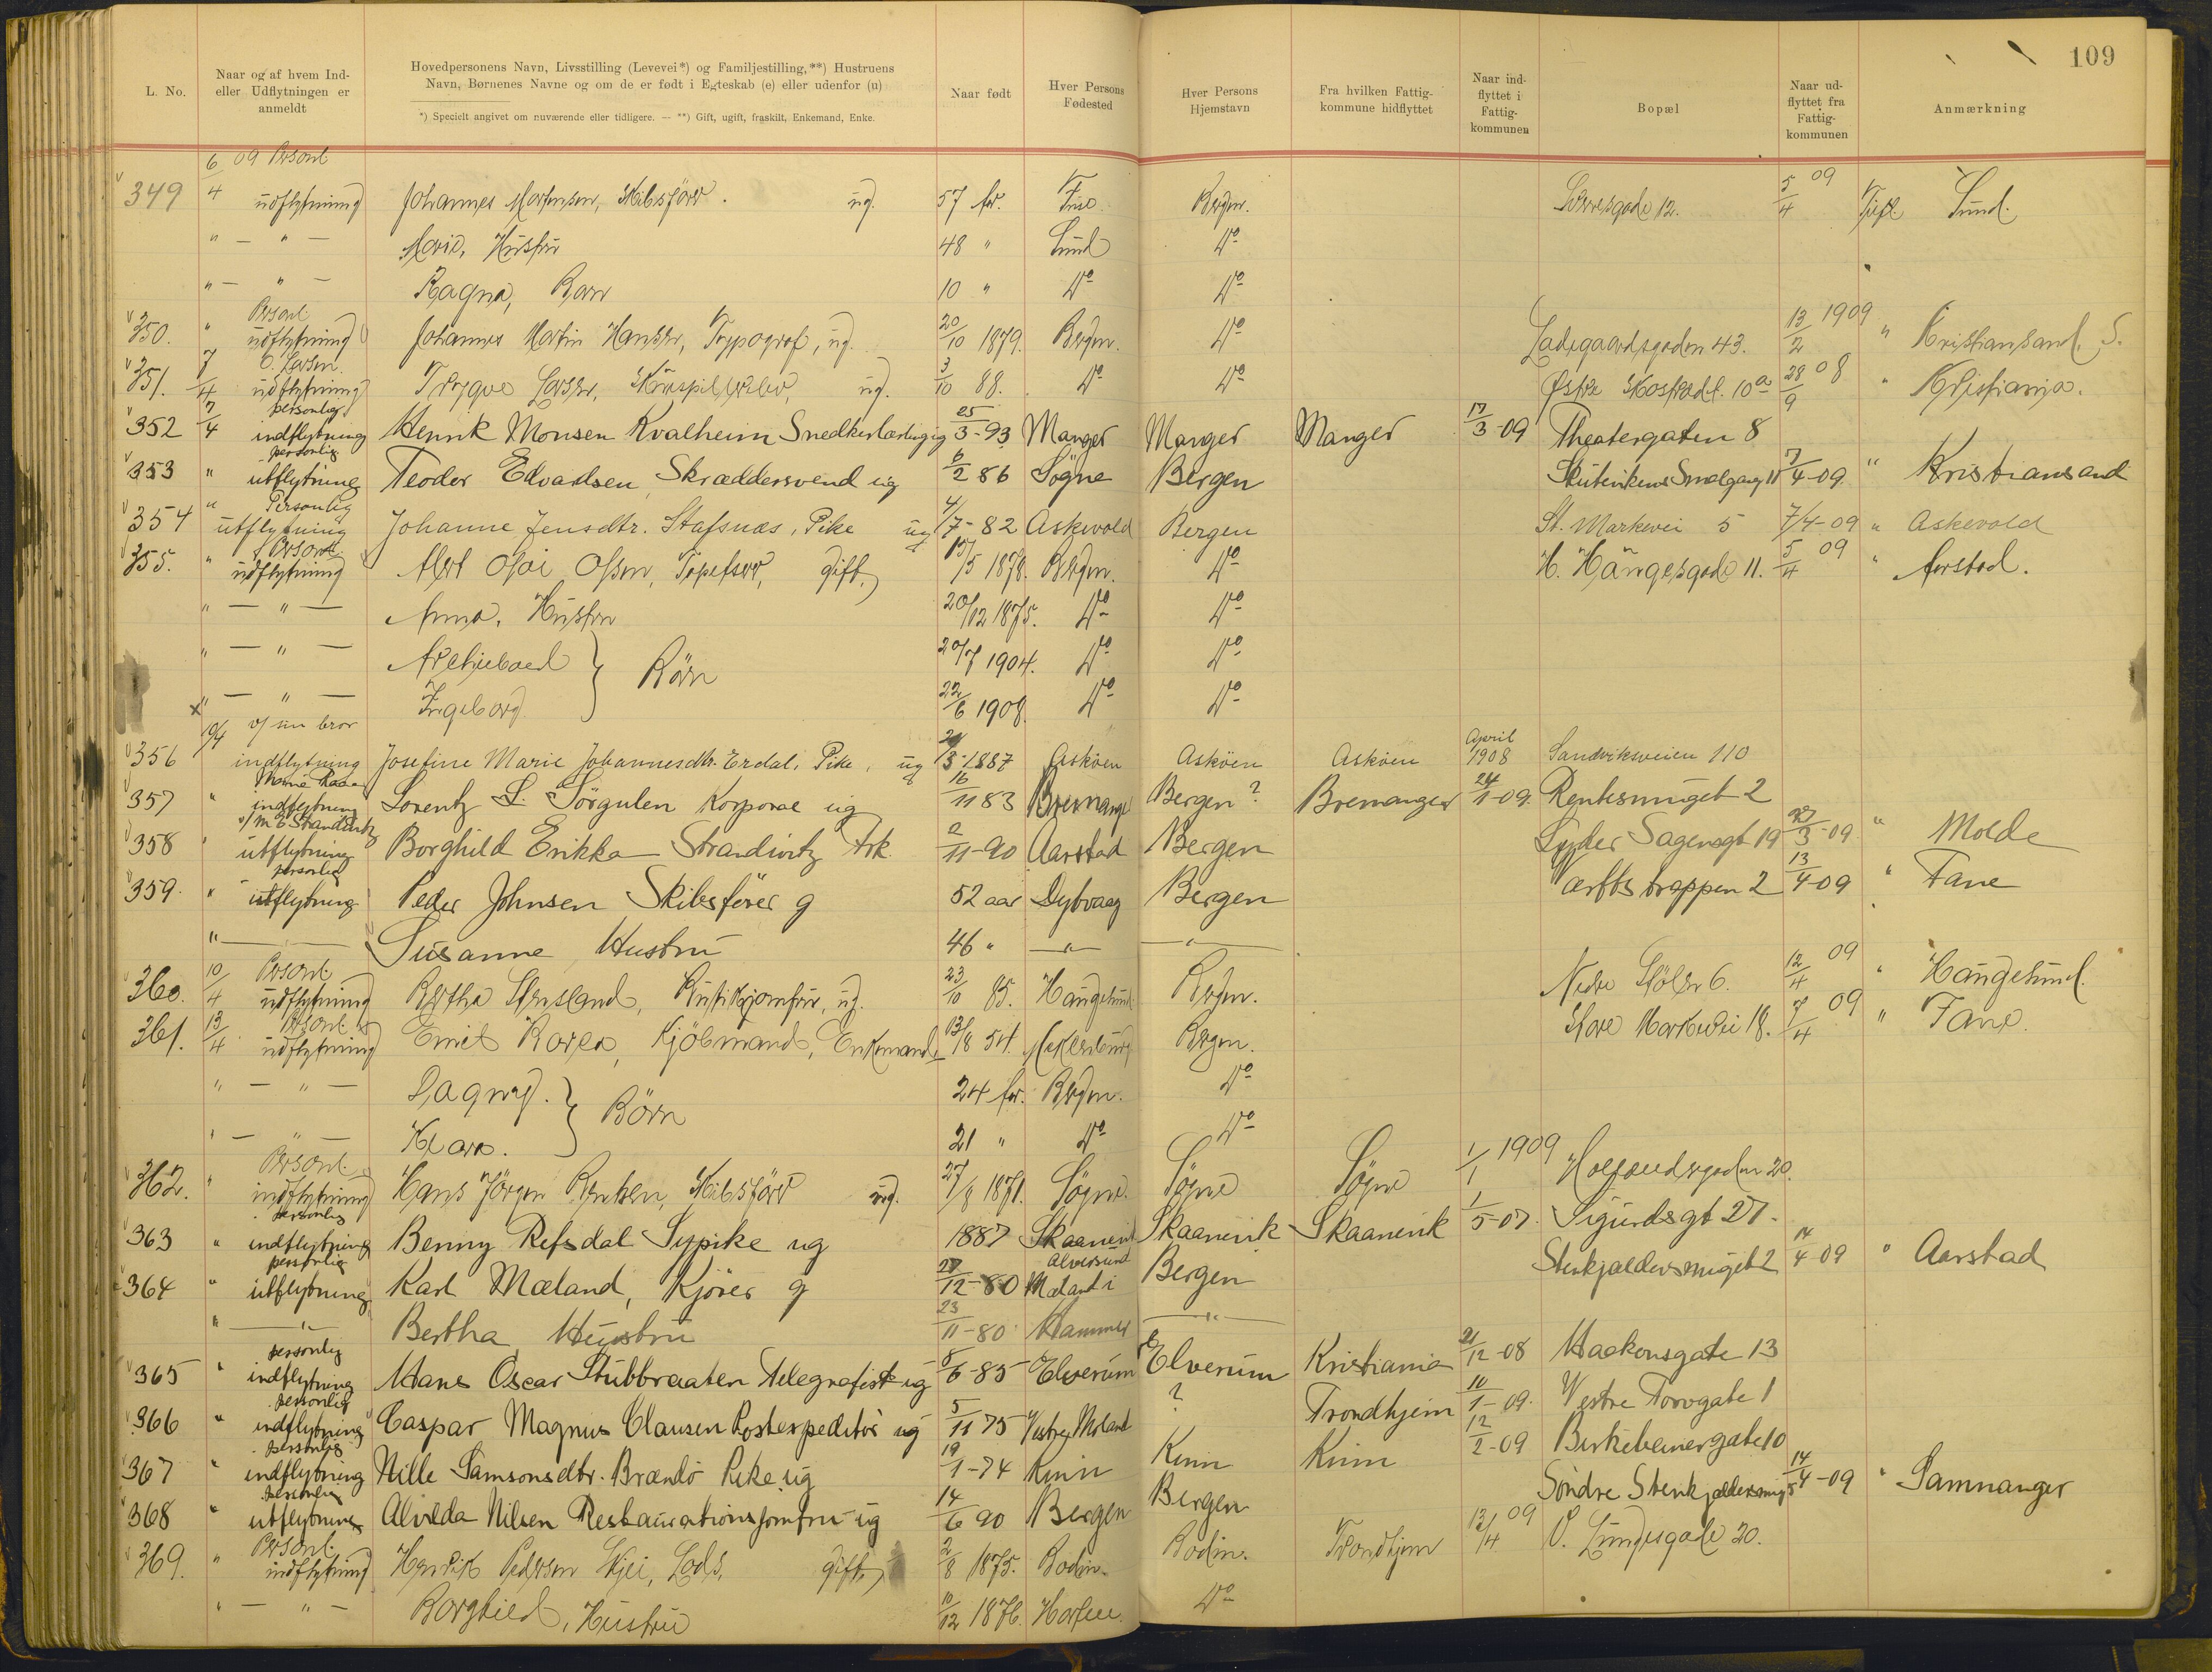 109
L. No. Naar og af hvem Ind- eller Udflytningen er anmeldt Hovedpersonens Navn, Livsstilling (Levevei*) og Familjestilling,**) Hustruens Navn, Børnenes Navne og om de er født i Egteskab (e) eller udenfor (u) Naar født Hver Persons Fødested Hver Persons Hjemstavn Fra hvilken Fattigkommune hidflyttet Naar indflyttet i Fattigkommunen Bopæl Naar udflyttet fra Fattigkommunen Anmærkning
*) Specielt angivet om nuværende eller tidligere. — **) Gift, ugift, fraskilt, Enkemand, Enke.
349 6/4 09 Personl. udflytning Johannes Skibsfører ug. 57 Bergen. 12. 5/4 09 Sund.
" — " — Marie, Hustru 48 " Sund Do
" — " — Ragna, Barn 10 " Do Do
350. " Personl. udflytning Johannes Martin Hansen, Typograf, ug. 20/10 1879. Bergen. Do Ladegaardsgaden 43. 13/2 1909 " Kristiansand S.
351. 7/4 C. Larsen udflytning Trygve Larsen, ug. 3/10 88. Do Do Østre 10a 28/9 08 " Kristiania.
352 7/4 personlig indflytning Henrik Monsen Kvalheim Snedkerlærling ug 25/3-93 Manger Manger Manger 17/3-09 Theatergaten 8
353 " personlig utflytning Teodor Edvardsen Skræddersvend ug 6/2 86 Søgne Bergen Skutevikens Smalgang 11 7/4-09 " Kristiansand
354 " Personlig utflytning Johanne Jensdtr. Stafsnæs, Pike ug 4/7-82 Askevold Bergen St. Markevei 5 7/4-09 " Askevold
355. " Personl. udflytning Olsen, gift, 1878. Bergen. Do H. Hångesgade 11. 5/4 09 " Aarstad.
" — " — Anna, Hustru 20/12 1875. Do Do
" — " — 20/7 1904. Do Do
Børn
" — " — Ingeborg 22/6 1908. Do Do
x
356 10/4 v/ sin bror indflytning Josefine Marie Johannesdtr. Erdal, Pike, ug 24/3-1887 Askøen Askøen Askøen April 1908 Sandviksveien 110
357 " indflytning Lorentz L. Sørgulen Korporal ug 16/11 83 Bremanger Bergen? Bremanger 24/1-09. Rentesmuget 2
358 " v/ M E Strandvitz utflytning Borghild Erikka Strandvitz Frk. 2/11-90 Aarstad Bergen Lyder Sagensgt 19 3-09 " Molde
359. " personlig utflytning Peder Johnsen Skibsfører g 52 aar Dybvaag Bergen Værftstrappen 2 13/4-09 " Fane
" — Susanne Hustru 46 " — " — — " —
360. 10/4 Personl. udflytning Bertha ug. 23/10 85. Haugesund Bergen. Nedre Stølen 6. 12/4 09 " Haugesund.
361. 13/4 Personl. udflytning Emil Kjøbmand, Enkemand 13/8 54. Bergen. Store Markevei 18. 7/4 09 " Fane.
" — " — Dagny. 24 Bergen. Do
Børn
" — " — Klara. 21 " Do Do
362. " Personl. indflytning Hans Jørgen Skibsfører ug. 27/8 1871. Søgne. Søgne Søgne 1/1 1909 Hollendergaden 20.
363 " personlig indflytning Benny Refsdal Sypike ug 1887 Skaanevik Skaanevik Skaanevik 1/5-07. Sigurdsgt 27.
364 " personlig utflytning Karl Mæland, Kjører g 27/12-80 Mæland i Alversund Bergen Stenkjældersmuget 2 14/4-09 " Aarstad
" — " — Bertha Hustru 23/11-80 Hammer — " —
365 " personlig indflytning Hans Oscar Stubbraaten Telegrafist ug 8/6-85 Elverum Elverum Kristiania 21/12-08 Haakonsgate 13
366 " personlig indflytning Caspar Magnus Clausen Postexpeditør ug 5/11 75 Vestre Moland ? Trondhjem 10/1-09. Vestre Torvgate 1
367 " personlig indflytning Nille Samsonsdtr. Brændø Pike ug 19/1-74 Kinn Kinn Kinn 12/2-09 Birkebeinergate 10
368 " personlig utflytning Alvilda Nilsen Restaurationsjomfru ug 14/6 90 Bergen Bergen Søndre Stenkjældersmug 5 14/4-09 " Samnanger
369. " Personl. indflytning Henrik Pedersen Lods, gift, 2/8 1875. Bodin. Bodin. Trondhjem 13/4 09 V. Lungegade 20.
" — " — Borghild, Hustru 10/12 1876. Do